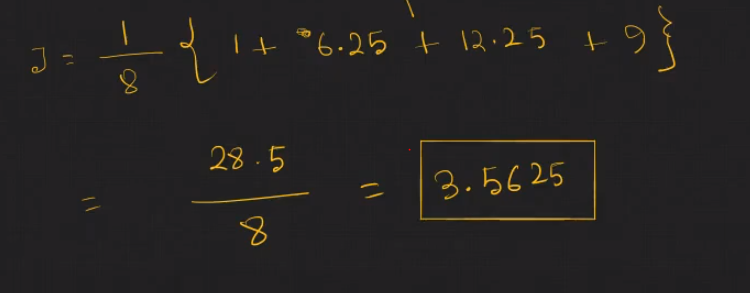 J = 1/8 { 1 + 6.25 + 12.25 + 9 }
= 28.5/8 = 3.5625